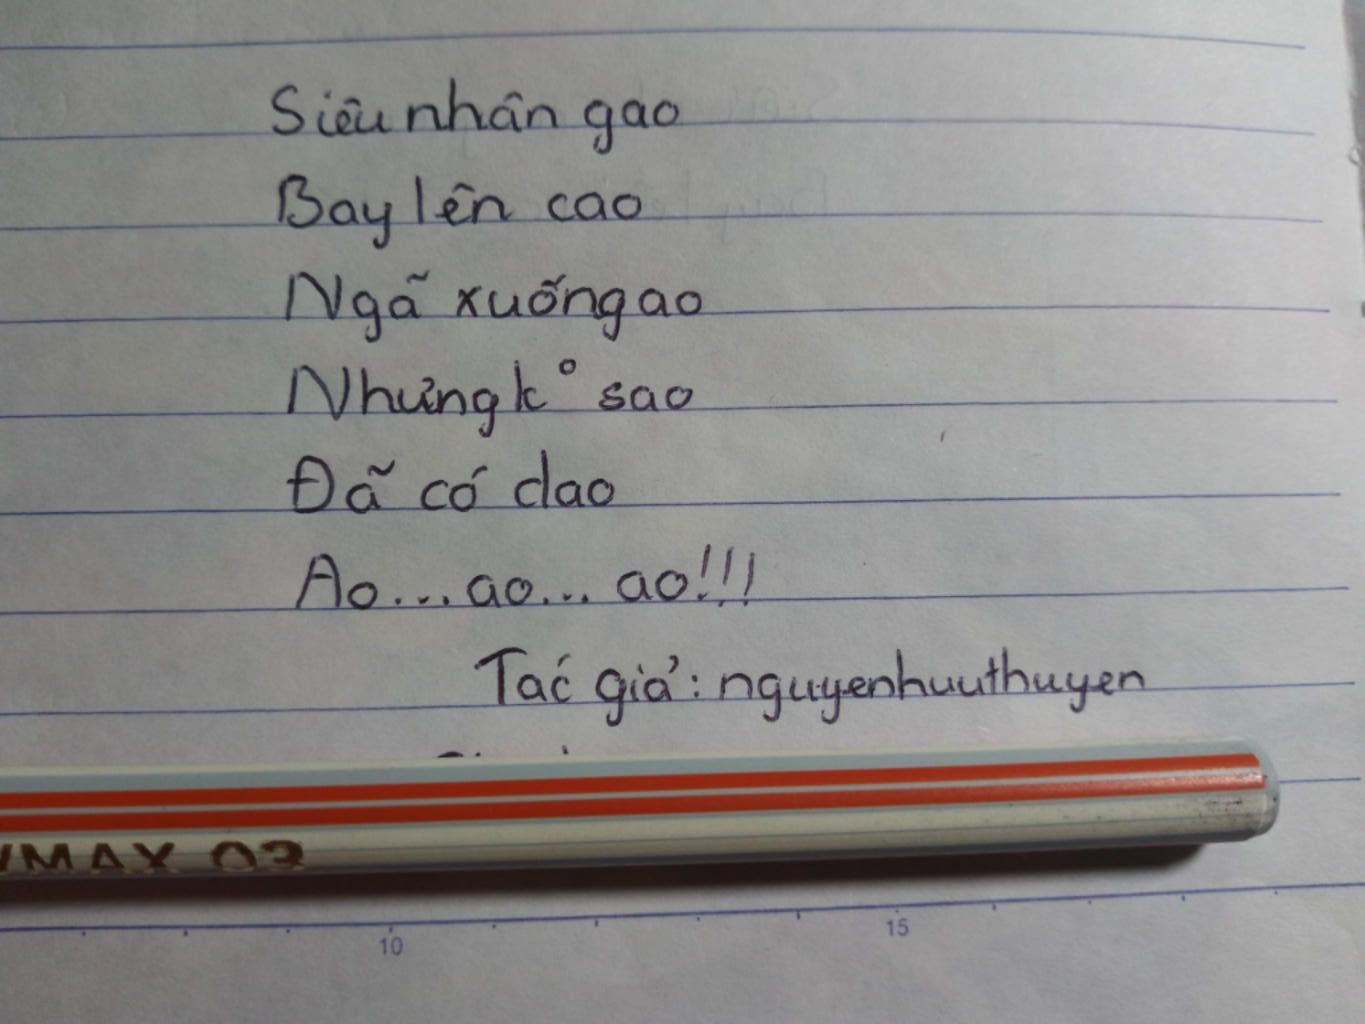 Siêu nhân gao
Bay lên cao
Ngã xuống ao
Nhưng k° sao
Đã có dao
Ao... ao... ao!!!
Tác giả: nguyenhuuthuyen
MAX 03
10 15